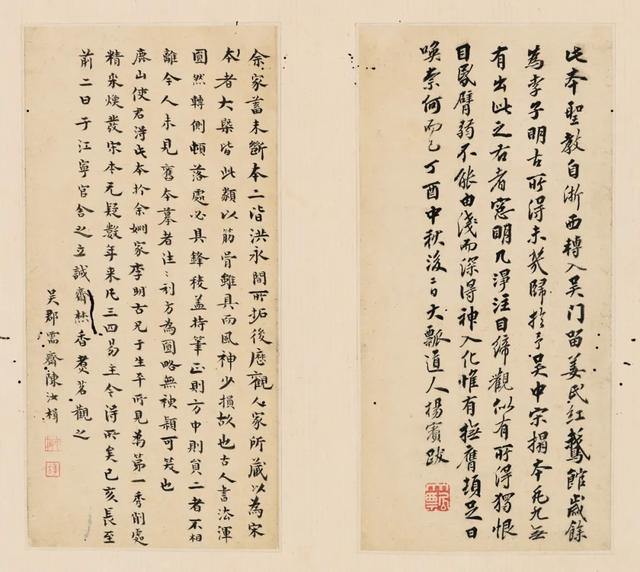 此本聖教自浙西轉入吴门留姜氏红鵞館歲餘
為李子明古所得未幾歸於予吴中宋搨本凡九無
有出此之右者窓明几淨注目締觀似有所得獨恨
目昏臂弱不能由淺而深得神入化惟有撫膺頓足日
喚奈何而已丁酉中秋後二日大瓢道人楊賓跋
余家蓄未斷本二皆洪永間所拓後歷觀人家所藏以為宋
本者大槩皆此類以筋骨雖具而風神少損故也古人書法渾
圓然轉側頓落處必具鋒稜蓋持筆正則方中則負二者不相
離今人未見舊本摹者注〻刓方為圓略無稜穎可笑也
鹿山使君得此本於余姻家李明古兄于生平所見為第一秀削處
精采煥發宋本无疑數年来凡三四易主今得所矣己亥長至
前二日于江寧官舍之立誠齋焚香煮茗觀之
吴郡需齋陳汝楫